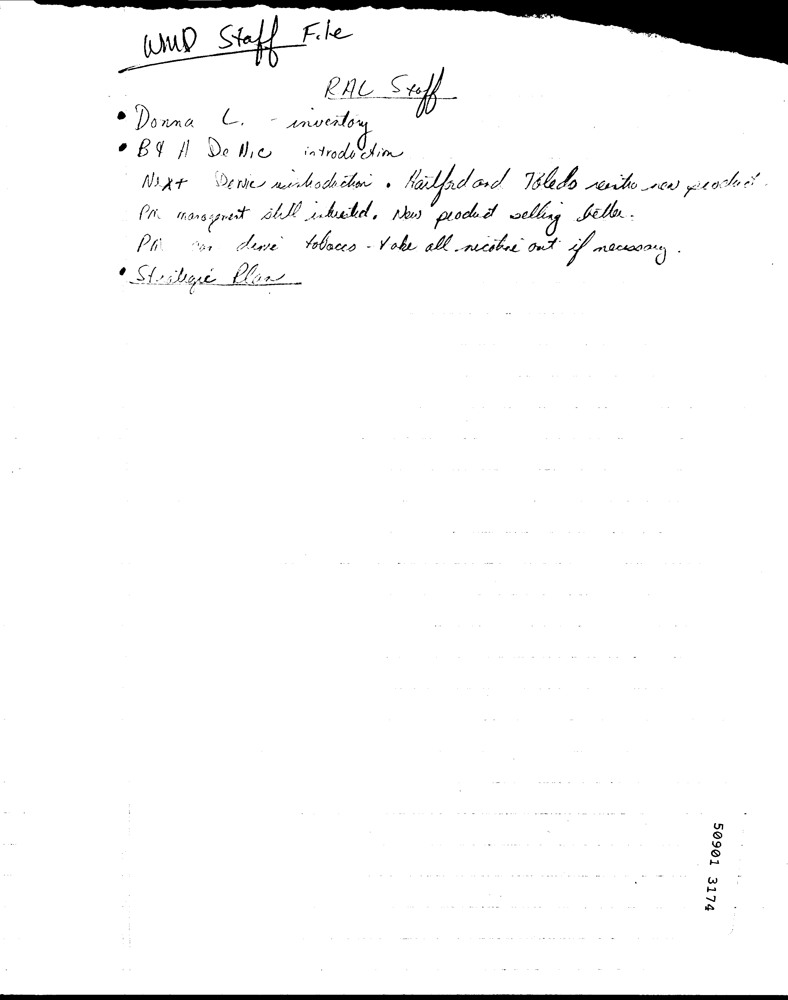 WMD Staff File
RAL Staff
• Donna L. - inventory
• B & H De Nic introduction
Next Denic introduction. Hartford and Toledo with new product.
PM management still interested. New product selling better.
PM can denic tobacco - take all nicotine out if necessary.
• Strategic Plan
50901 3174